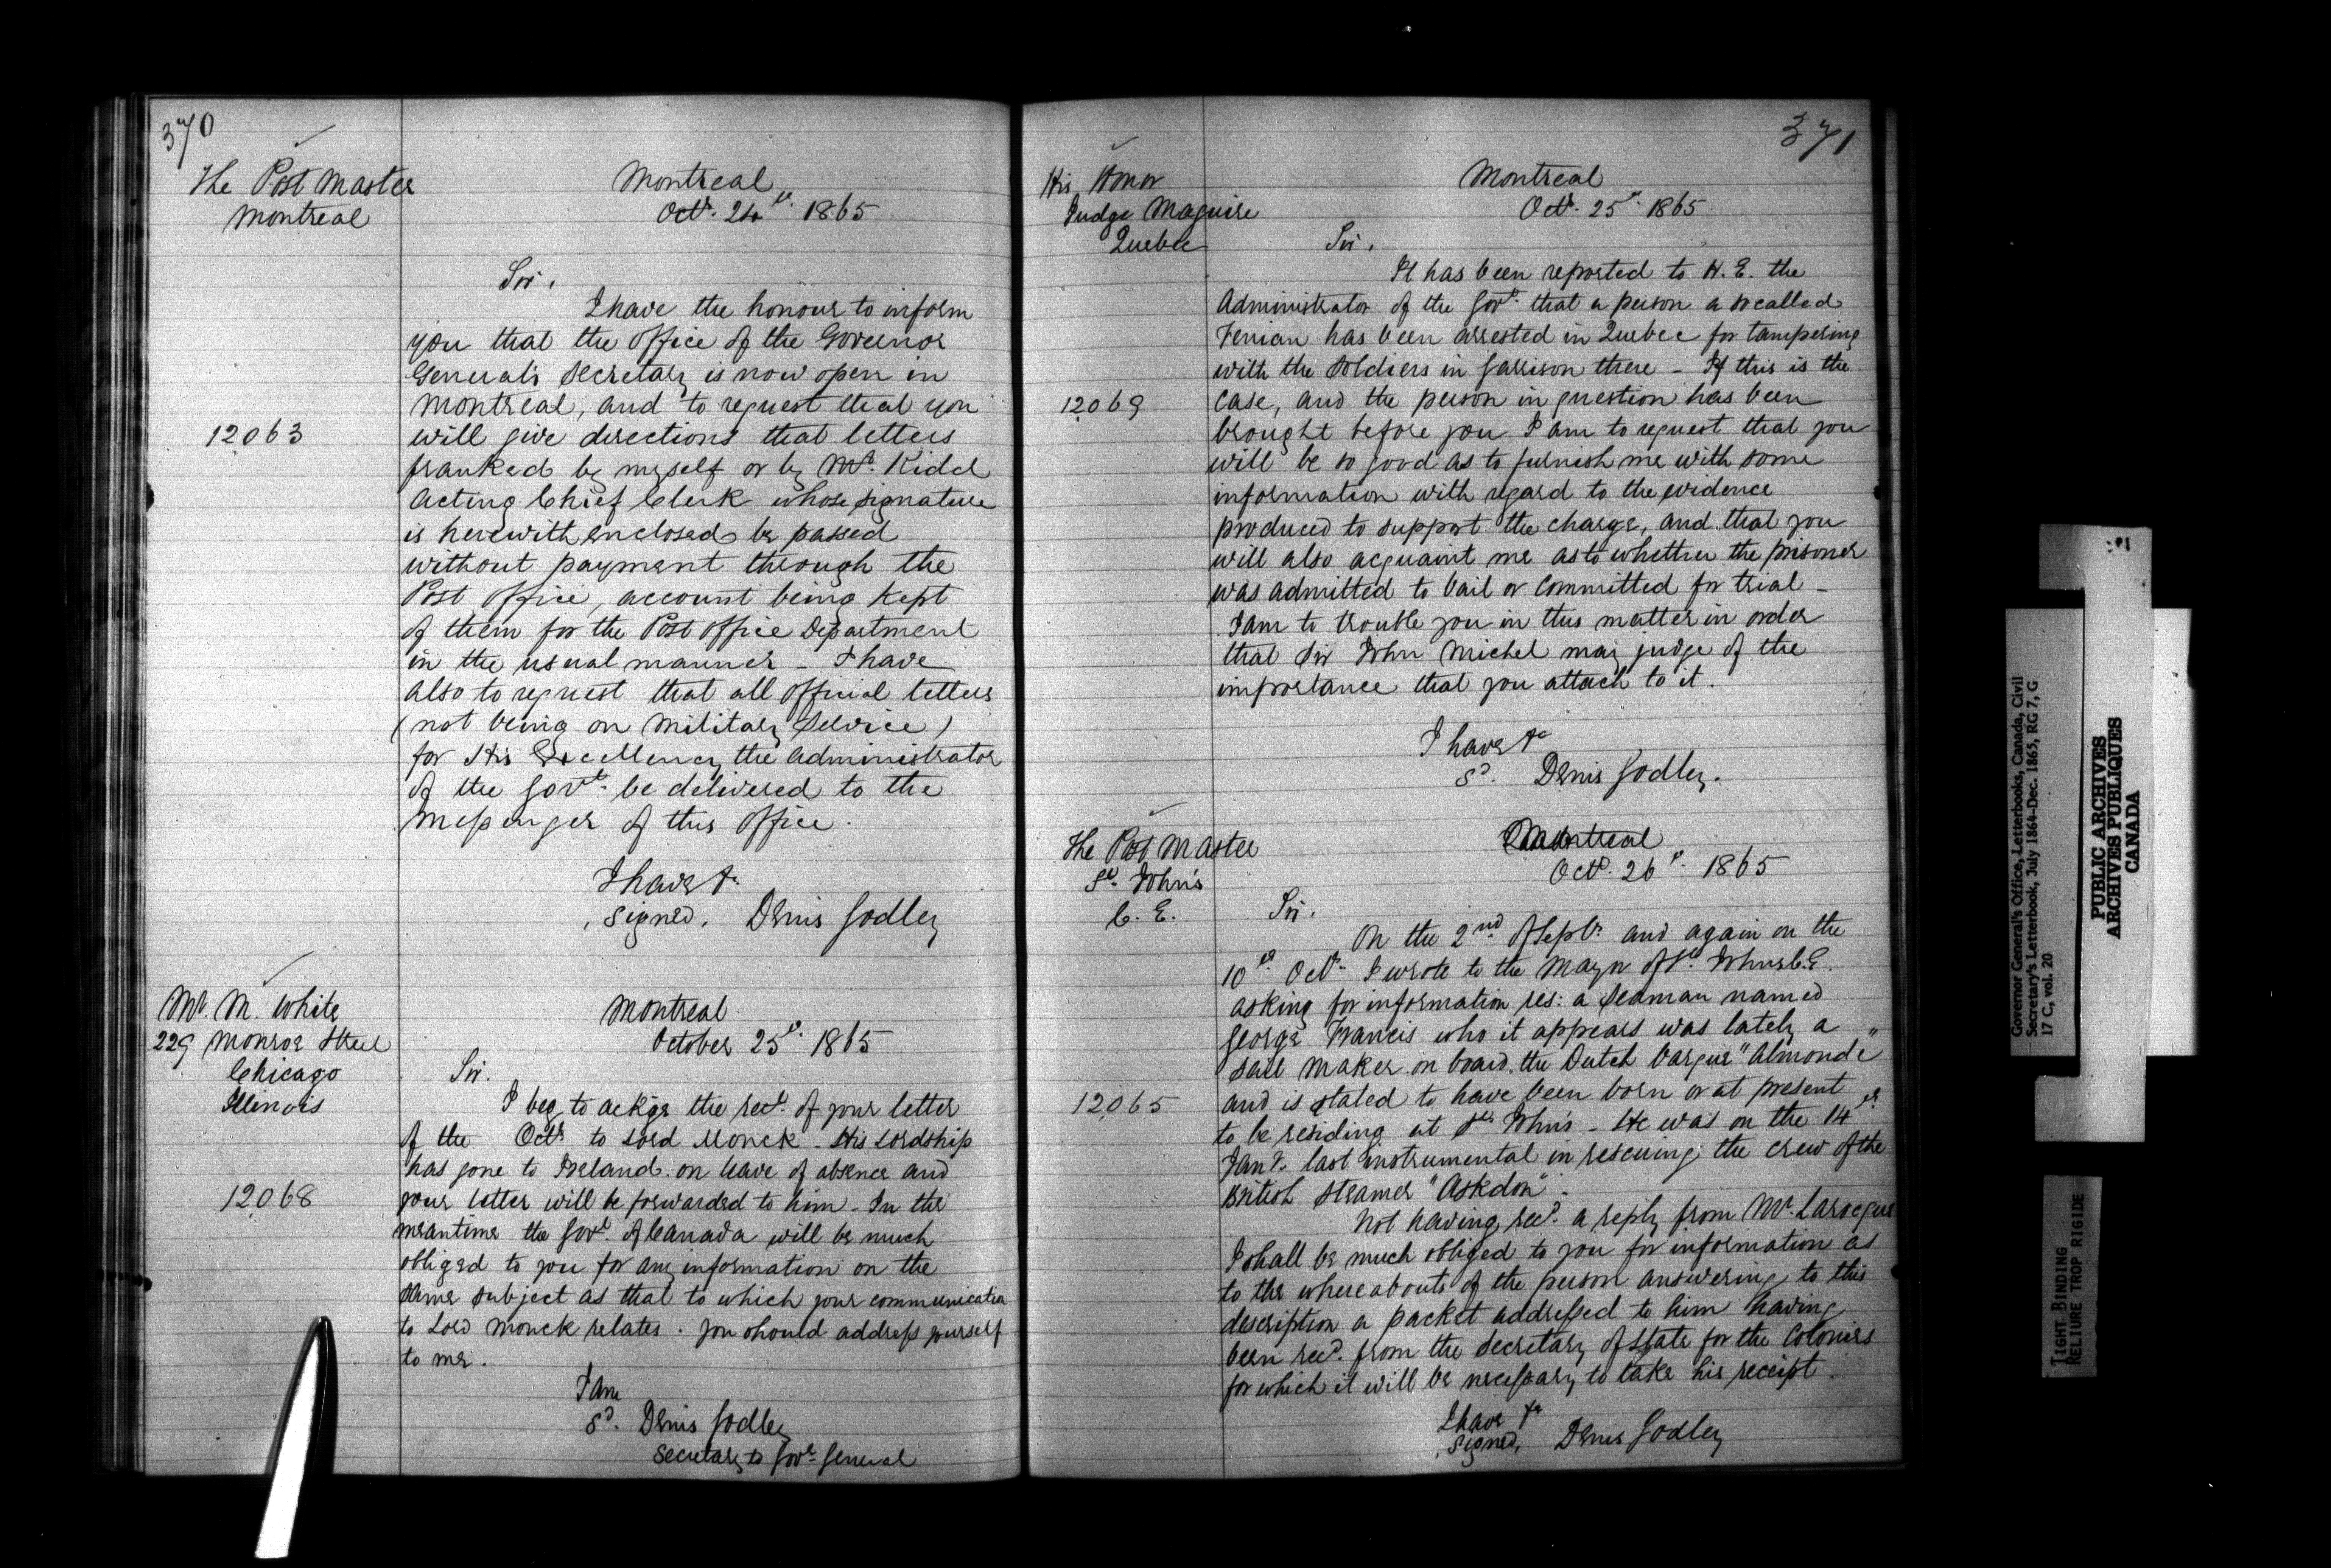 370
The Post Master
Montreal
Montreal
Octr. 24th. 1865
Sir,
I have the honour to inform
you that the Office of the Governor
General's Secretary is now open in
Montreal, and to request that you
12063
will give directions that letters
franked by myself or by Mr. Kidd
Acting Chief Clerk whose signature
is herewith enclosed be passed
without payment through the
Post Office, account being kept
of them for the Post Office Department
in the usual manner - I have
also to request that all official letters
(not being on Military Service)
for His Excellency the Administrator
of the Govt. be delivered to the
Messenger of this Office.
I have &c
Signed, Denis Godley
Mr. M. White
229 Monroe Street
Chicago
Illinois
Montreal
October 25th. 1865
Sir.
I beg to ackge the rect. of your letter
of the Octr. to Lord Monck. His Lordship
has gone to Ireland on leave of absence and
12068
your letter will be forwarded to him - In the
meantime the Govt. of Canada will be much
obliged to you for any information on the
same subject as that to which your communication
to Lord Monck relates. You should address yourself
to me.
I am
Sd. Denis Godley
Secretary to Govr. General
371
His Honor
Judge Maguire
Quebec
Montreal
Octr. 25th. 1865
Sir,
It has been reported to H. E. the
Administrator of the Govt. that a person a so called
Fenian has been arrested in Quebec for tampering
with the soldiers in Garrison there - If this is the
12069
case, and the person in question has been
brought before you I am to request that you
will be so good as to furnish me with some
information with regard to the evidence
produced to support the charge, and that you
will also acquaint me as to whether the prisoner
was admitted to bail or committed for trial -
I am to trouble you in this matter in order
that Sir John Michel may judge of the
importance that you attach to it.
I have &c
Sd. Denis Godley.
The Post Master
St. John's
C. E.
Montreal
Octr. 26th. 1865
Sir.
On the 2nd of Septr. and again on the
10th. Octr. I wrote to the Mayor of St. Johns C.E.
asking for information res: a seaman named
George Francis who it appears was lately a
sail maker on board the Dutch barque "Almonde"
12065
and is stated to have been born or at present
to be residing at St. John's - He was on the 14th
Jany. last instrumental in rescuing the crew of the
British Steamer "Askdon".
Not having recd. a reply from Mr. Larocque
I shall be much obliged to you for information as
to the whereabouts of the person answering to this
description a packet addressed to him having
been recd. from the Secretary of State for the Colonies
for which it will be necessary to take his receipt.
I have &c
Signed, Denis Godley
Governor General's Office, Letterbooks, Canada, Civil
Secretary's Letterbook, July 1864-Dec. 1865, RG 7, G
17 C, vol. 20
PUBLIC ARCHIVES
ARCHIVES PUBLIQUES
CANADA
TIGHT BINDING
RELIURE TROP RIGIDE